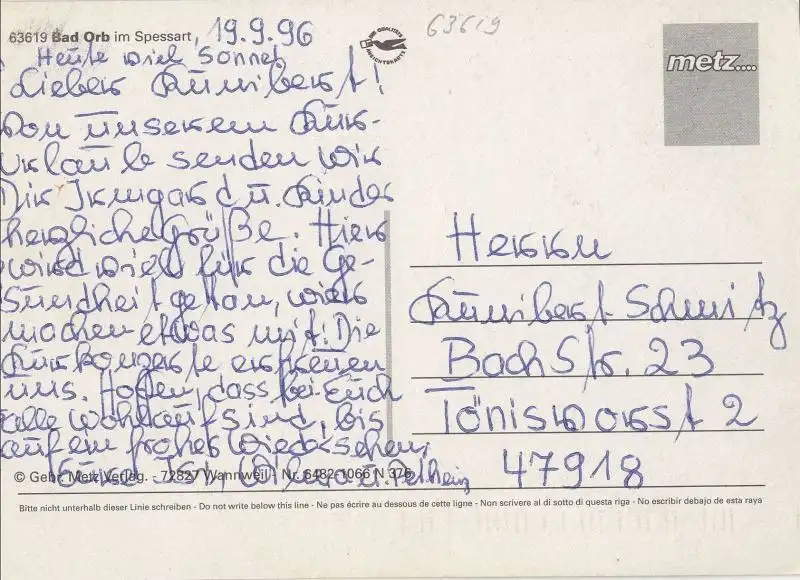 63619 Bad Orb im Spessart, 19.9.96
63619
Heute viel Sonne!
Lieber Kunibert!
Von unserem Kur-
urlaub senden wir
Dir Irmgard u. Kinder
herzliche Grüße. Hier
wird viel für die Ge-
sundheit getan, wir
machen etwas mit! Die
Kurkonzerte erfreuen
uns. Hoffen, dass bei Euch
alle wohlauf sind, bis
auf ein frohes Wiedersehen,
DIE QUALITÄTS
ANSICHTSKARTE
metz....
Herrn
Kunibert Schmitz
Bachstr. 23
Tönisvorst 2
47918
© Gebr. Metz Verlag. - 72827 Wannweil Nr. 6482 1066 N 376
Bitte nicht unterhalb dieser Linie schreiben - Do not write below this line - Ne pas écrire au dessous de cette ligne - Non scrivere al di sotto di questa riga - No escribir debajo de esta raya